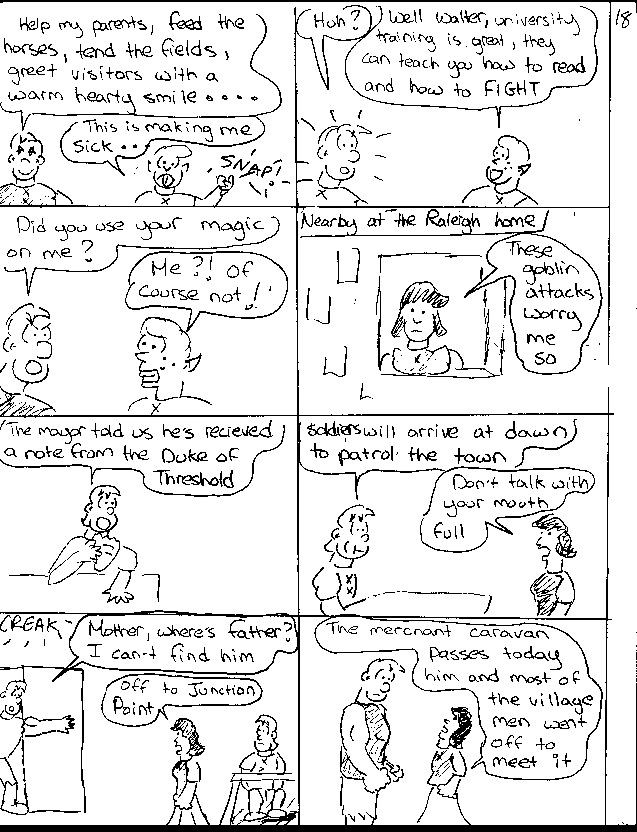 Help my parents, feed the
horses, tend the fields,
greet visitors with a
warm hearty smile ....
This is making me
sick..
SNAP!
Huh?
Well Walter, university
training is great, they
can teach you how to read
and how to FIGHT
18
Did you use your magic
on me?
Me?! of
course not!
Nearby at the Raleigh home
These
goblin
attacks
worry
me
so
The mayor told us he's recieved
a note from the Duke of
Threshold
soldiers will arrive at dawn
to patrol the town
Don't talk with
your mouth
full
CREAK
Mother, where's father?
I can't find him
off to Junction
Point
The merchant caravan
passes today
him and most of
the village
men went
off to
meet it